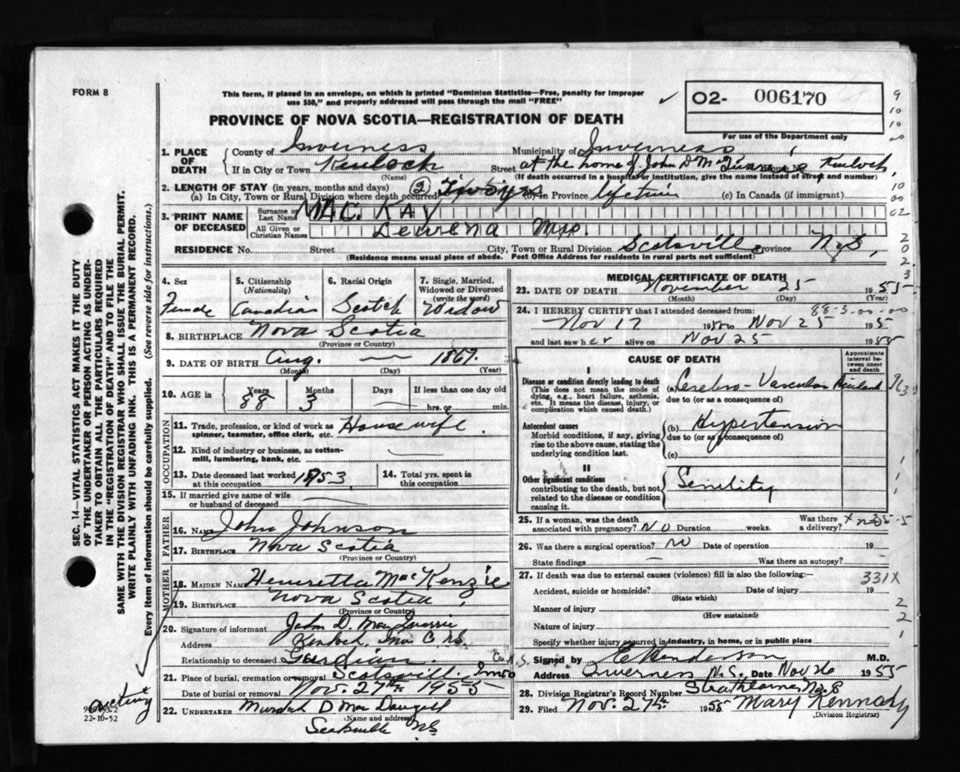 FORM 8
This form, if placed in an envelope, on which is printed "Dominion Statistics—Free, penalty for improper
use $50," and properly addressed will pass through the mail "FREE"
✓
O2- 006170
For use of the Department only
PROVINCE OF NOVA SCOTIA—REGISTRATION OF DEATH
1. PLACE OF DEATH
County of Inverness Municipality of Inverness
If in City or Town Kinloch Street at the home of John D. Mac Kinloch
(Name) (If death occurred in a hospital or institution, give the name instead of street and number)
2. LENGTH OF STAY (in years, months and days)
(a) In City, Town or Rural Division where death occurred (2) Two yrs (b) In Province lifetime (c) In Canada (if immigrant)
3. PRINT NAME OF DECEASED
Surname or Last Name MAC KAY
All Given or Christian Names Mrs.
RESIDENCE No. Street City, Town or Rural Division Scotsville Province N.S.
(Residence means usual place of abode. Post Office Address for residents in rural parts not sufficient)
4. Sex 5. Citizenship (Nationality) 6. Racial Origin 7. Single, Married, Widowed or Divorced (write the word)
Female Canadian Scotch Widow
8. BIRTHPLACE Nova Scotia
(Province or Country)
9. DATE OF BIRTH Aug. — 1867.
(Month) (Day) (Year)
10. AGE in Years Months Days If less than one day old
88 3 — hrs. or min.
OCCUPATION
11. Trade, profession, or kind of work as Housewife.
spinner, teamster, office clerk, etc.
12. Kind of industry or business, as cotten-
mill, lumbering, bank, etc. —
13. Date deceased last worked at this occupation 1953 14. Total yrs. spent in this occupation
15. If married give name of wife
or husband of deceased
FATHER
16. NAME John Johnson
17. BIRTHPLACE Nova Scotia
(Province or Country)
MOTHER
18. MAIDEN NAME Henrietta MacKenzie
19. BIRTHPLACE Nova Scotia
(Province or Country)
20. Signature of informant John D.
Address Kinloch, Inv. Co. N.S.
Relationship to deceased Guardian
21. Place of burial, cremation or removal Scotsville Inv. Co. N.S.
Date of burial or removal Nov. 27th 1955
22. UNDERTAKER Murdoch D. MacDougall
(Name and address)
Scotsville N.S.
MEDICAL CERTIFICATE OF DEATH
23. DATE OF DEATH November 25 1955
(Month) (Day) (Year)
24. I HEREBY CERTIFY that I attended deceased from: 88-3-00-00
Nov 17 19 to Nov 25 1955
and last saw her alive on Nov 25 1955
CAUSE OF DEATH
Approximate interval between onset and death
I
Disease or condition directly leading to death
(This does not mean the mode of dying, e.g., heart failure, asthenia, etc. It means the disease, injury, or complication which caused death.)
(a) Cerebro-Vascular
due to (or as a consequence of)
Antecedent causes
Morbid conditions, if any, giving rise to the above cause, stating the underlying condition last.
(b) Hypertension
due to (or as a consequence of)
(c)
II
Other significant conditions
contributing to the death, but not related to the disease or condition causing it.
Senility
25. If a woman, was the death associated with pregnancy? NO Duration weeks. Was there a delivery?
26. Was there a surgical operation? NO Date of operation 19
State findings — Was there an autopsy?
27. If death was due to external causes (violence) fill in also the following:—
331X
Accident, suicide or homicide? Date of injury 19
(State which)
Manner of injury
(How sustained)
Nature of injury
Specify whether injury occurred in industry, in home, or in public place
Signed by Henderson M.D.
Address Inverness N.S. Date Nov 26 1955
28. Division Registrar's Record Number Strathlorne No. 8
29. Filed Nov. 27th 1955 Mary Kennedy
(Division Registrar)
SEC. 14—VITAL STATISTICS ACT MAKES IT THE DUTY
OF THE UNDERTAKER OR PERSON ACTING AS UNDER-
TAKER TO OBTAIN ALL THE PARTICULARS REQUIRED
IN THE "REGISTRATION OF DEATH" AND TO FILE THE
SAME WITH THE DIVISION REGISTRAR WHO SHALL ISSUE THE BURIAL PERMIT.
WRITE PLAINLY WITH UNFADING INK. THIS IS A PERMANENT RECORD.
Every item of information should be carefully supplied. (See reverse side for instructions.)
22-10-52